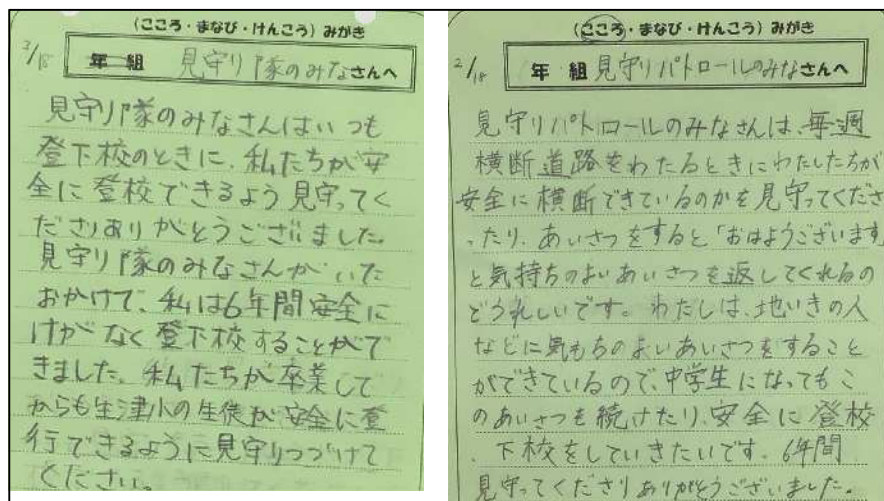 (こころ・まなび・けんこう)みがき
2/18
年 組 見守り隊のみなさんへ
見守り隊のみなさんはいつも
登下校のときに、私たちが安
全に登校できるよう見守ってく
ださりありがとうございました。
見守り隊のみなさんがいた
おかげで、私は6年間安全に
けがなく登下校することがで
きました。私たちが卒業して
からも生津小の生徒が安全に登
行できるように見守りつづけて
ください。
(こころ・まなび・けんこう)みがき
2/18
年 組 見守りパトロールのみなさんへ
見守りパトロールのみなさんは、毎週
横断道路をわたるときにわたしたちが
安全に横断できているのかを見守ってくださ
ったり、あいさつをすると「おはようございます
と気持ちのよいあいさつを返してくれるの
でうれしいです。わたしは、地いきの人
などに気もちのよいあいさつをすること
ができているので、中学生になってもこ
のあいさつを続けたり、安全に登校
、下校をしていきたいです。6年間
見守ってくださりありがとうございました。